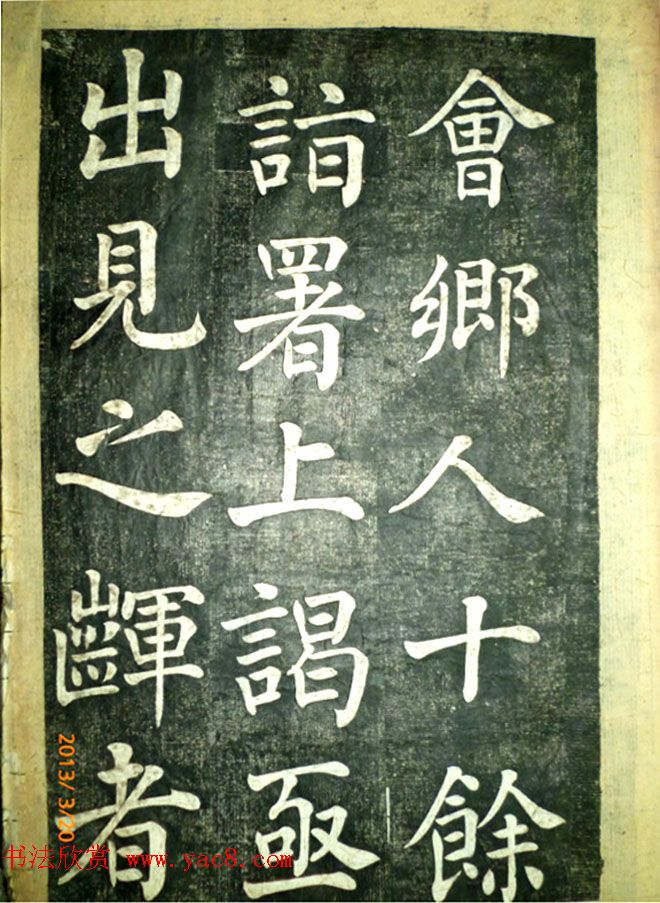 會鄉人十餘
詣署上謁亟
出見之齳者
2013/ 3/20
书法欣赏 www.yac8.com